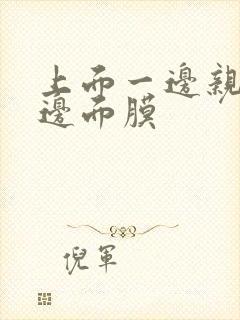 上而一邊親
邊而膜
倪軍